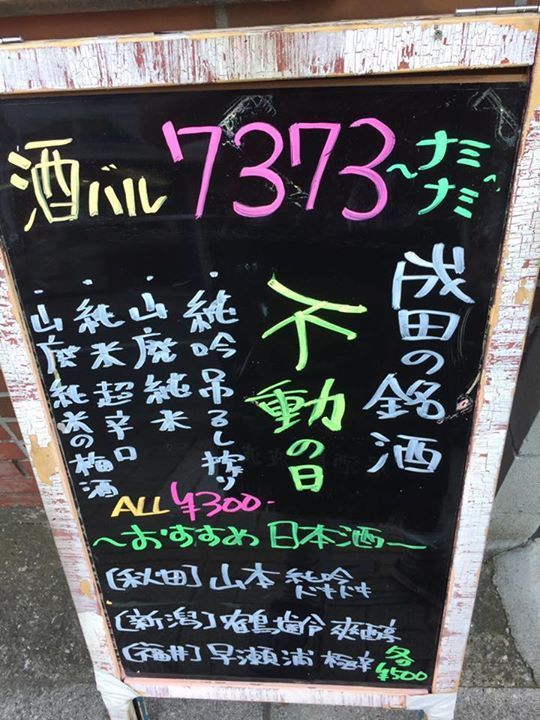 酒バル 7373~ナミナミ^
成田の銘酒
不動の日
・純吟吊るし搾り
・山廃純米
・純米超辛口
・山廃純米の梅酒
ALL ¥300-
~おすすめ日本酒~
[秋田]山本 純吟 ドキドキ
[新潟]鶴齢 爽醇
[福井]早瀬浦 極辛 各¥500